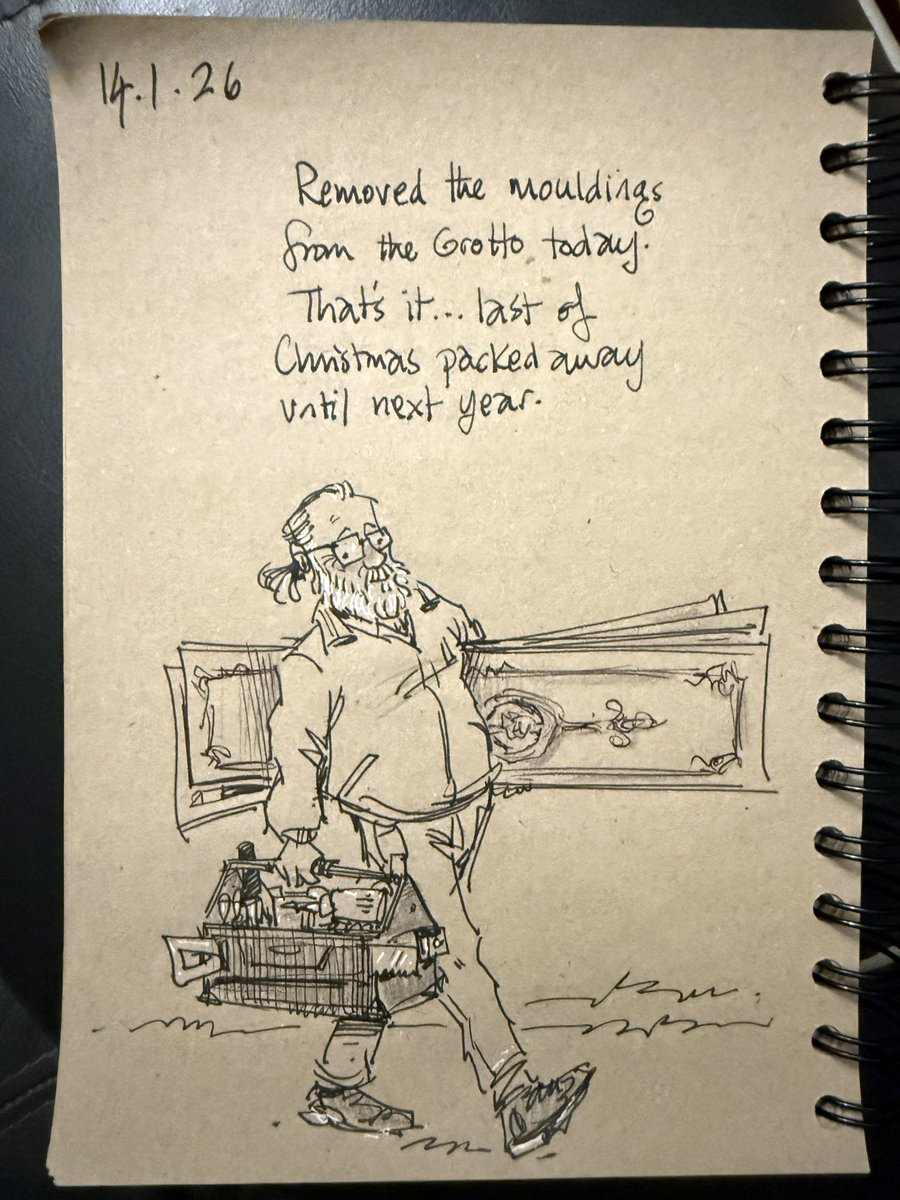 14.1.26
Removed the mouldings
from the Grotto today.
That's it... last of
Christmas packed away
until next year.